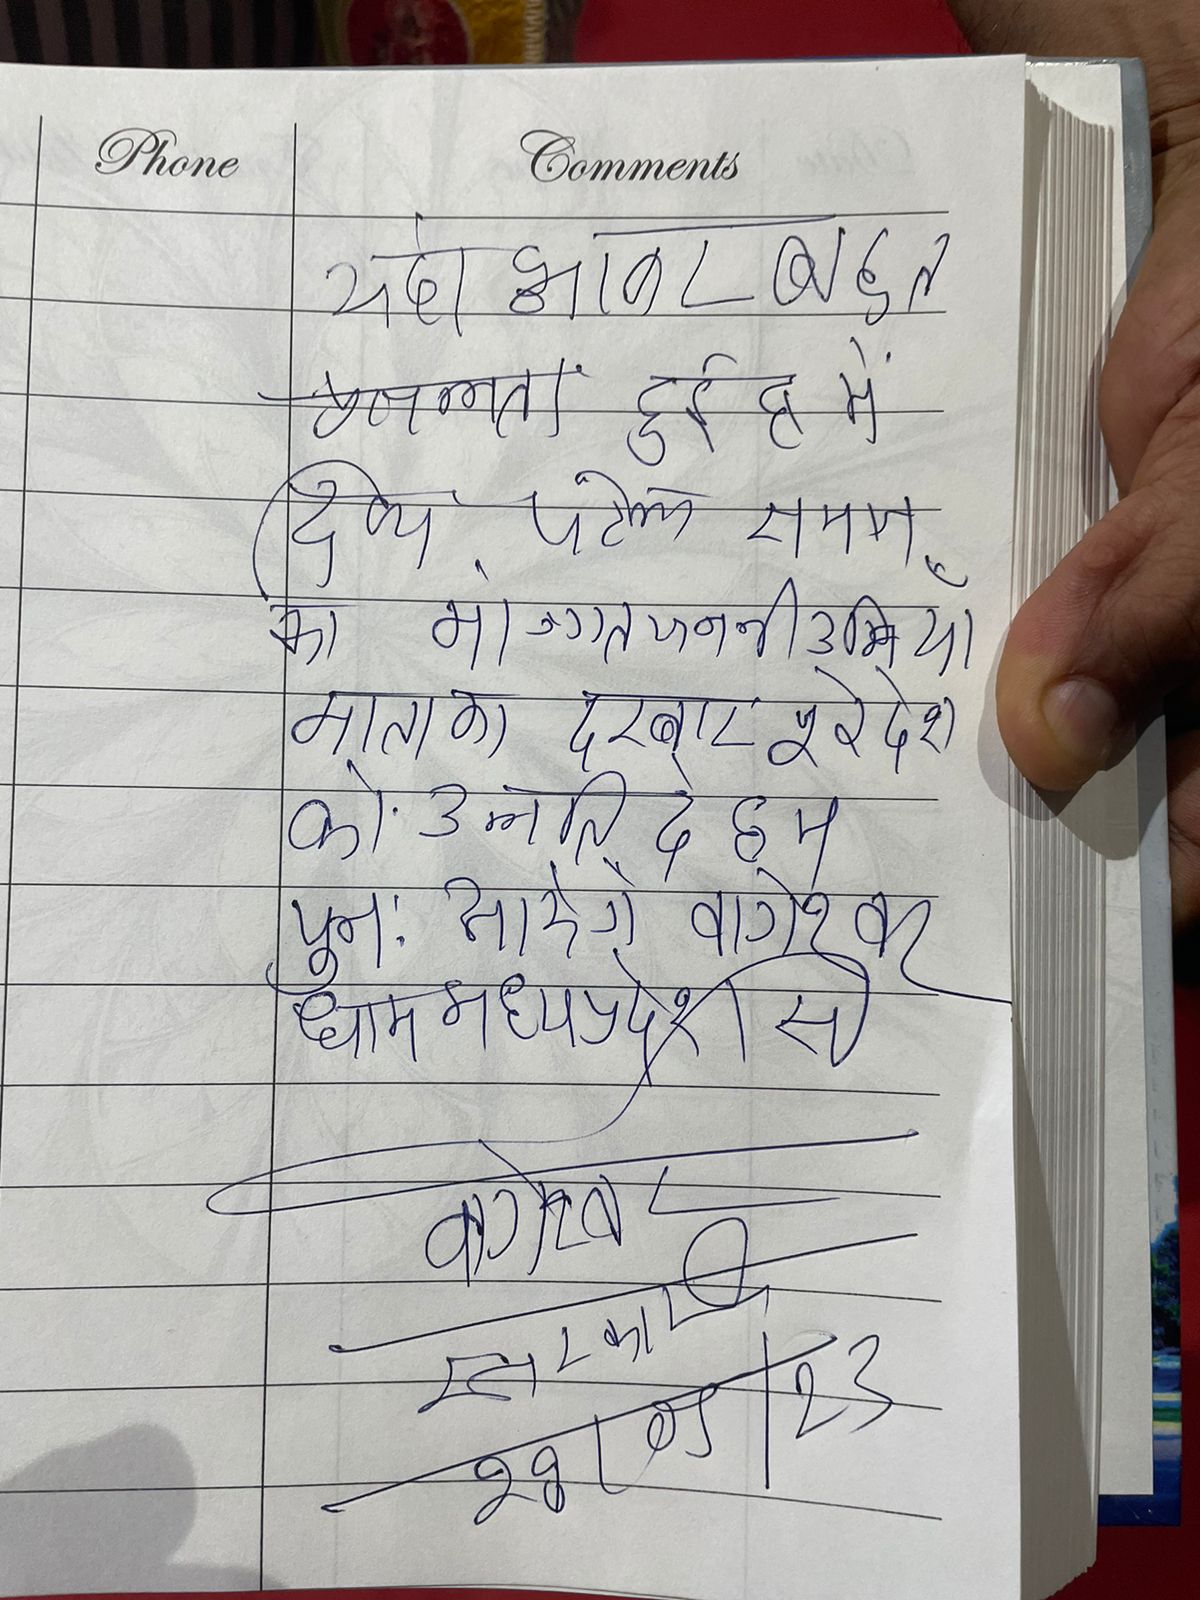 Phone Comments
यहाँ आकर बहुत
प्रसन्नता हुई है में
दिव्य पटेल समाज
का माँ जगत जननी उमिया
माता का दरबार पूरे देश
को उन्नति दे हम
पुनः आयेंगे बागेश्वर
धाम मध्यप्रदेश से
बागेश्वर
सरकार
23